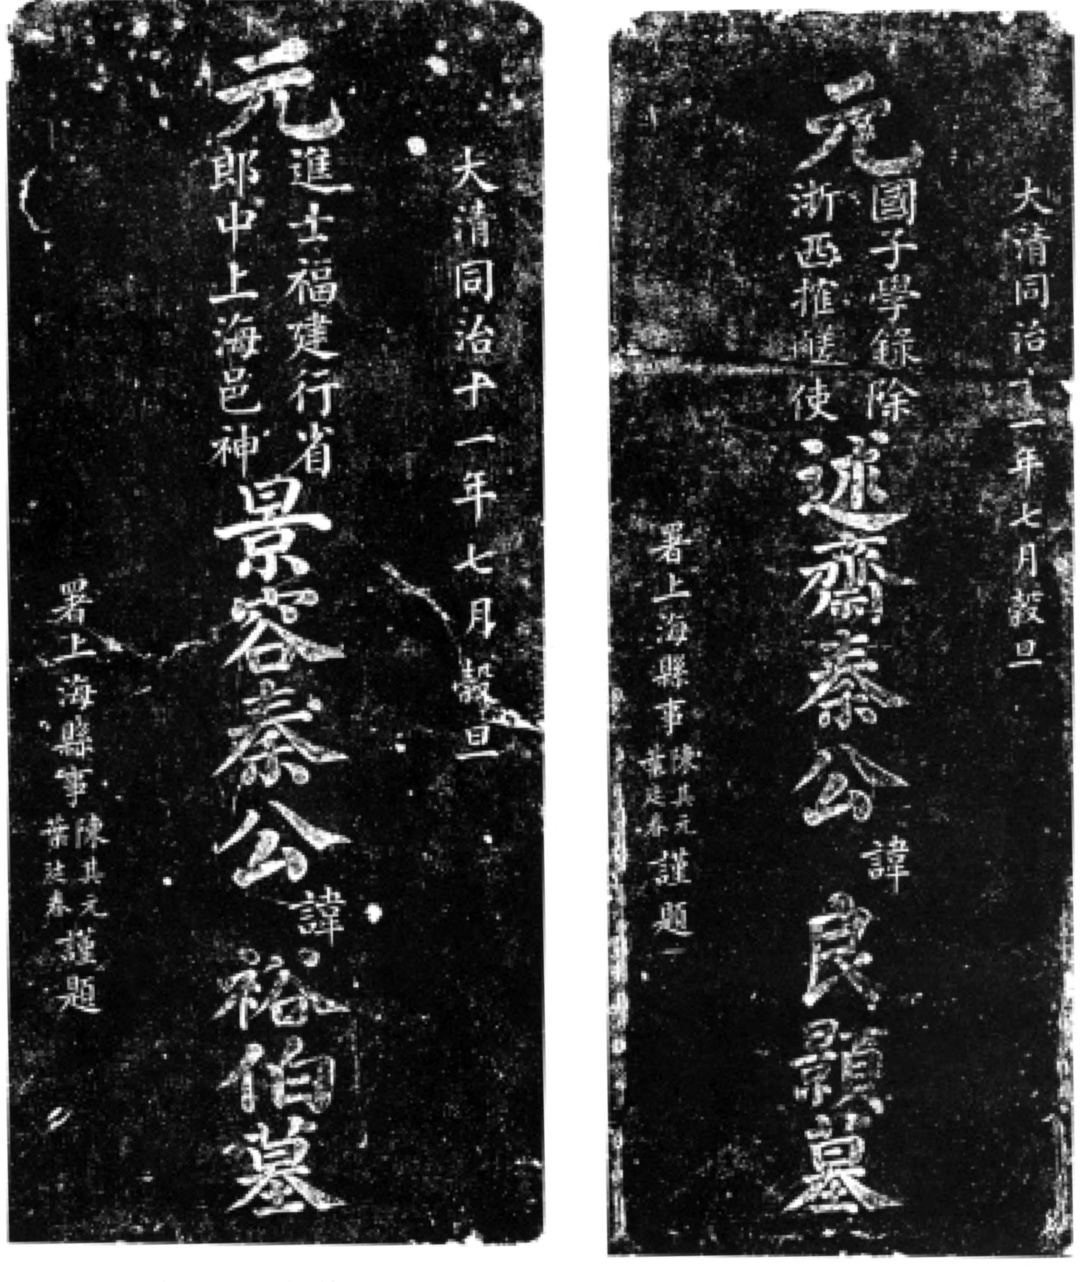 大清同治十一年七月穀旦
元
國子學錄除
浙西搉使
述齋秦公
諱
良顥墓
署上海縣事
陳其元
葉廷春
謹題
大清同治十一年七月穀旦
元
進士福建行省
郎中上海邑神
景容秦公
諱
裕伯墓
署上海縣事
陳其元
葉廷春
謹題